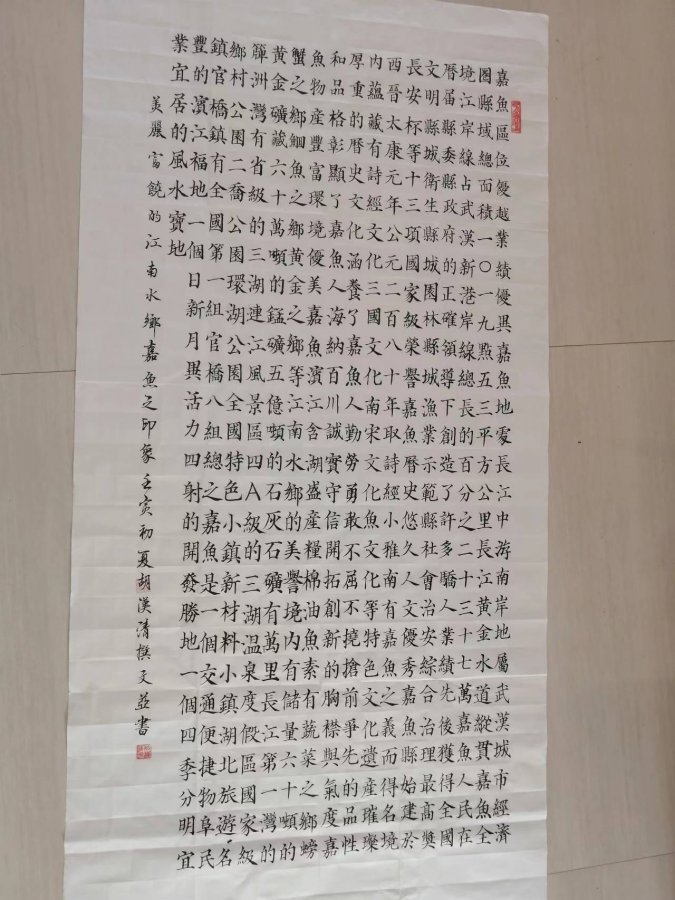 嘉魚區位優越業績優異嘉魚地處長江中游南岸地屬武漢城市經濟
圈縣域總面積一〇一九點五三平方公里長江黃金水道縱貫嘉魚全
境江岸線占武漢新港岸線總長的百分之二十三十七萬嘉魚人民在
曆届縣委縣政府的正確領導下創造了許多驕人業績先後獲得全國
文明縣城衛生縣城園林縣城漁業示範縣社會治安綜合治理最高獎
長安杯等十三項國家級榮譽嘉魚曆史悠久人文優秀嘉魚縣始建於
西晉太康元年公元二百八十年取詩經小雅南有嘉魚之義而得名境
内蘊藏有詩經文化三國文化南宋文化魚文化等特色文化遺產璀璨
厚重的曆史文化涵養了嘉魚人勤勞勇敢不屈不撓搶前爭先的品性
和品格彰顯了嘉魚人海納百川誠實守信開拓創新的胸襟與氣度嘉
魚物產豐富環境優美嘉魚濱江含湖盛產糧棉油魚素有蔬菜之鄉螃
蟹之鄉鮰魚之鄉黃金之鄉等江南水鄉的美譽境内有儲量六十噸的
黃金礦藏六十萬噸的錳礦五億噸的石灰石礦有萬里長江第一灣的
簰洲灣有省級的三湖連江風景區四A級的三湖溫泉度假區國家級
鄉村公園二喬公園環湖公園全國特色小鎮新材料小鎮湖北旅遊名
鎮官橋鎮有全國第一組官橋八組總之嘉魚是一個交通便捷物阜民
豐的濱江福地一個日新月異活力四射的開發勝地一個四季分明宜
業宜居的風水寶地
美麗富饒的江南水鄉嘉魚之印象壬寅初夏胡漢清撰文並書